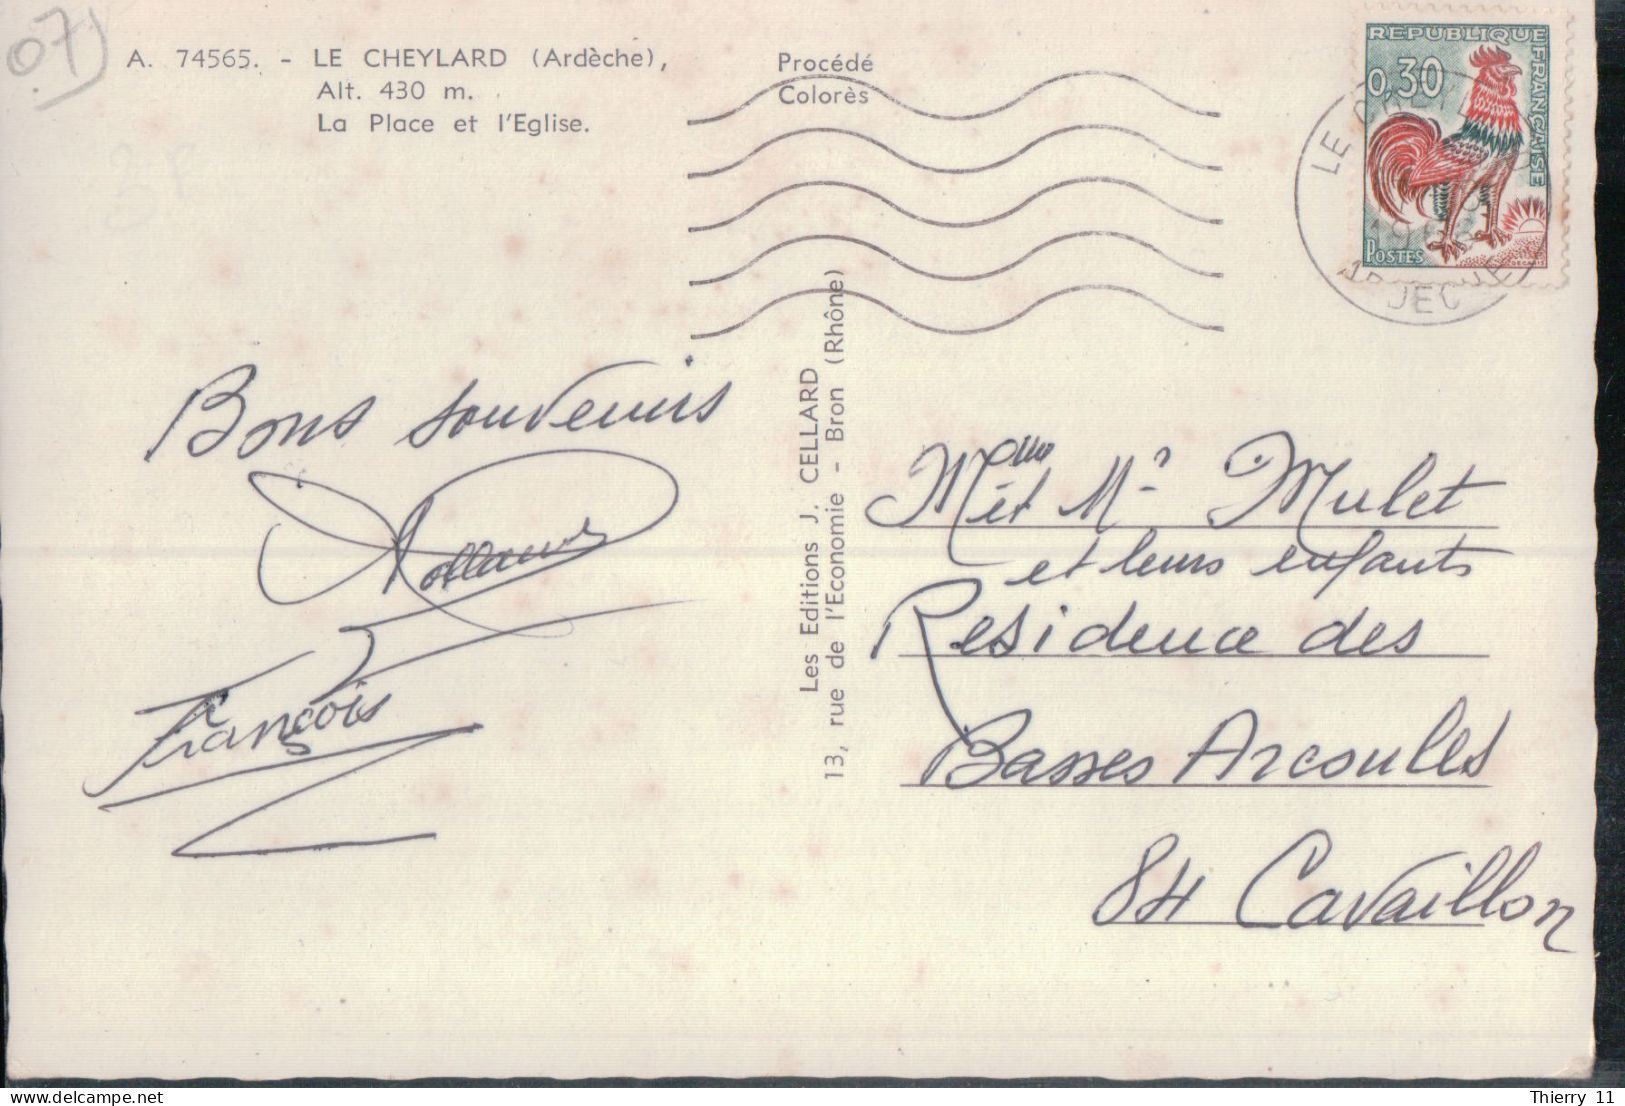 07
A. 74565. - LE CHEYLARD (Ardèche),
Alt. 430 m.
La Place et l'Eglise.
Procédé
Colorès
REPUBLIQUE
FRANÇAISE
0,30
POSTES
DECARIS
LE
Bons souvenirs
François
Les Editions J. CELLARD
13, rue de l'Economie - Bron (Rhône)
Mme et Mr Mulet
et leurs enfants
Residence des
Basses Arcoules
84 Cavaillon
Thierry 11